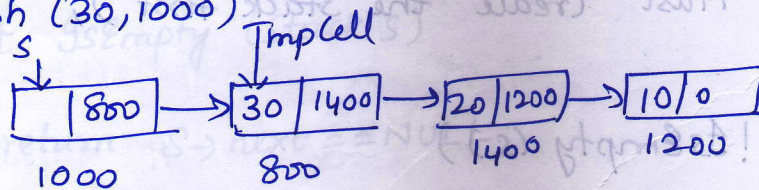 h (30,1000)
S
TmpCell
800 30 1400 20 1200 10 0
1000 800 1400 1200